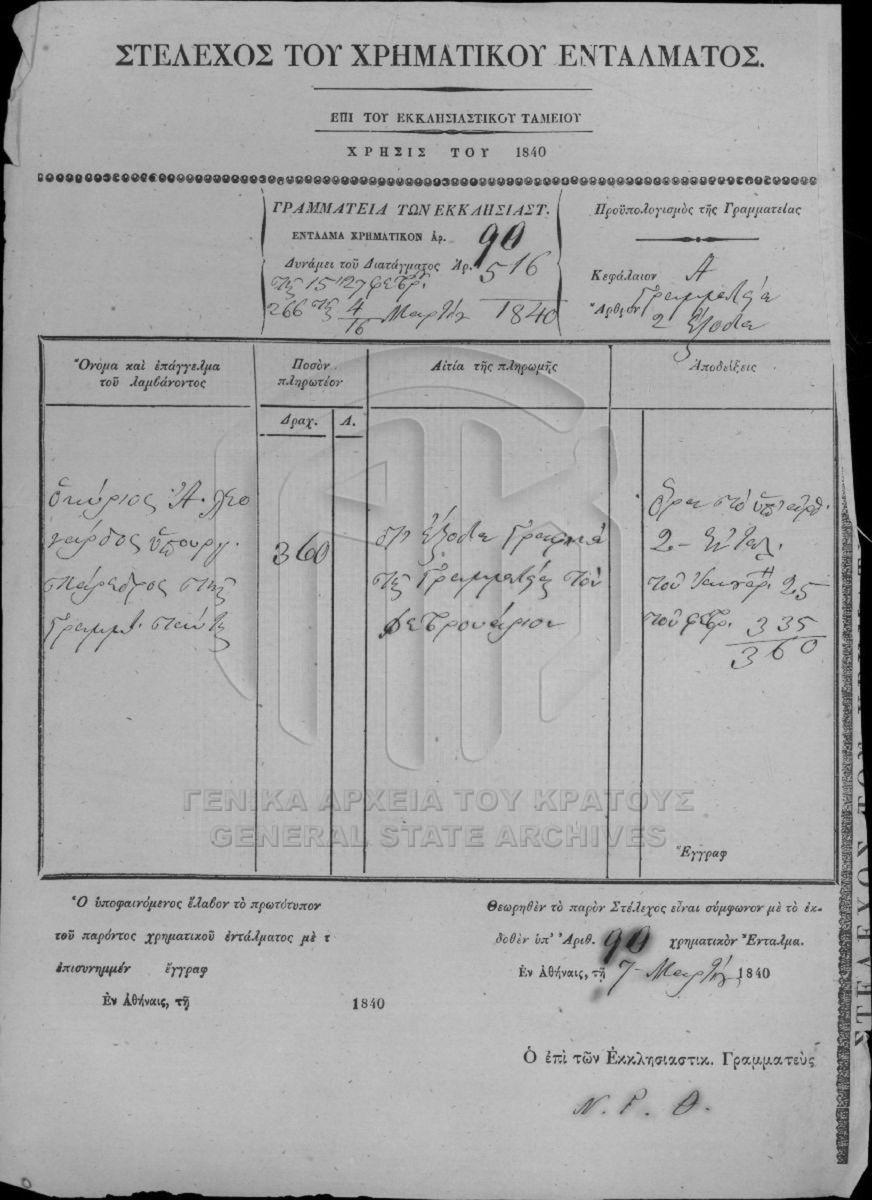 ΣΤΕΛΕΧΟΣ ΤΟΥ ΧΡΗΜΑΤΙΚΟΥ ΕΝΤΑΛΜΑΤΟΣ.
ΕΠΙ ΤΟΥ ΕΚΚΛΗΣΙΑΣΤΙΚΟΥ ΤΑΜΕΙΟΥ
ΧΡΗΣΙΣ ΤΟΥ 1840
ΓΡΑΜΜΑΤΕΙΑ ΤΩΝ ΕΚΚΛΗΣΙΑΣΤ.
ΕΝΤΑΛΜΑ ΧΡΗΜΑΤΙΚΟΝ Ἀρ. 90
Δυνάμει τοῦ Διατάγματος Ἀρ. 516
τῆς 15/27 Φεβρ.
266 τῆς 4/16 Μαρτίου 1840
Προϋπολογισμὸς τῆς Γραμματείας
Κεφάλαιον Α
Γραμματεία
Ἄρθρον 2 Ἔξοδα
Ὄνομα καὶ ἐπάγγελμα
τοῦ λαμβάνοντος
Ποσὸν
πληρωτέον
Αἰτία τῆς πληρωμῆς
Ἀποδείξεις
Δραχ. Λ.
ὁ κύριος Ἀ. Λεο
νάρδος ὑπουργ.
πάρεδρος τῆς
Γραμμ. ταύτης
360
δι' ἔξοδα Γραφικά
τῆς Γραμματείας τὸν
Φεβρουάριον
Ὅρα τὸ ὑπ' ἀριθ.
2 - Ἐνταλ.
τοῦ Ἰαννουαρ. 25
τοῦ Φεβρ. 335
360
ΓΕΝΙΚΑ ΑΡΧΕΙΑ ΤΟΥ ΚΡΑΤΟΥΣ
GENERAL STATE ARCHIVES
Ἔγγραφ
Ὁ ὑποφαινόμενος ἔλαβον τὸ πρωτότυπον
τοῦ παρόντος χρηματικοῦ ἐντάλματος μὲ τ
ἐπισυνημμέν ἔγγραφ
Ἐν Ἀθήναις, τῇ 1840
Θεωρηθὲν τὸ παρὸν Στέλεχος εἶναι σύμφωνον μὲ τὸ ἐκ-
δοθὲν ὑπ' Ἀριθ. 90 χρηματικὸν Ἔνταλμα.
Ἐν Ἀθήναις, τῇ 7 Μαρτίου 1840
Ὁ ἐπὶ τῶν Ἐκκλησιαστικ. Γραμματεὺς
Ν. Γ. Θ.